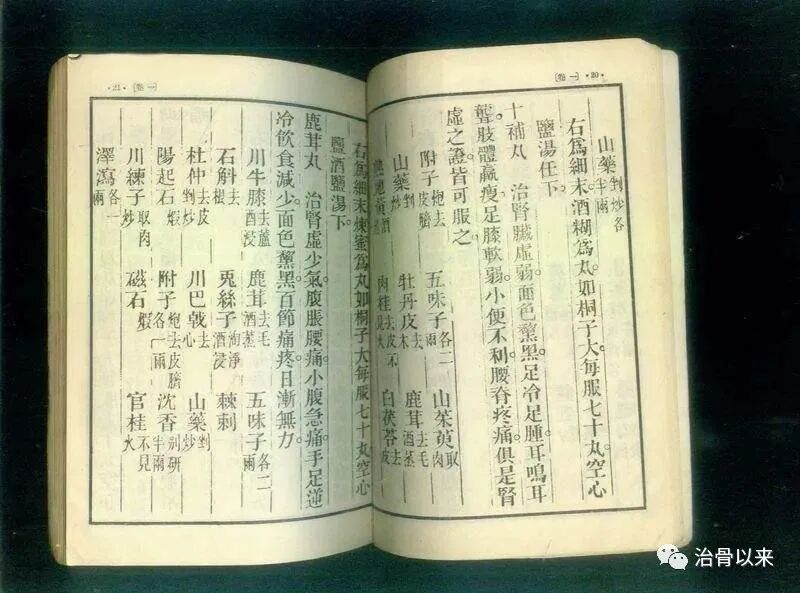 [卷一] ·20·
山藥剉炒各半兩
右爲細末酒糊爲丸如桐子大每服七十丸空心
鹽湯任下。
十補丸 治腎臟虛弱。面色黧黑。足冷足腫。耳鳴耳
聾。肢體羸瘦。足膝軟弱。小便不利。腰脊疼痛。俱是腎
虛之證。皆可服之。
附子炮去皮臍 五味子各二兩 山茱萸取肉
山藥剉炒 牡丹皮去木 鹿茸去毛酒蒸
肉桂去皮不見火 白茯苓去皮
·21· [卷一]
右爲細末煉蜜爲丸如桐子大每服七十丸空心
鹽酒鹽湯下。
鹿茸丸 治腎虛少氣。腹脹腰痛。小腹急痛。手足逆
冷。飲食減少。面色黧黑。百節痛疼。日漸無力。
川牛膝去蘆酒浸 鹿茸去毛酒蒸 五味子各二兩
石斛去根 兎絲子淘淨酒浸 棘刺
杜仲去皮剉炒 川巴戟去心 山藥剉炒
陽起石煆 附子炮去皮臍各一兩 沈香別研半兩
川練子取肉炒 磁石煆 官桂不見火
澤瀉各一兩
治骨以来